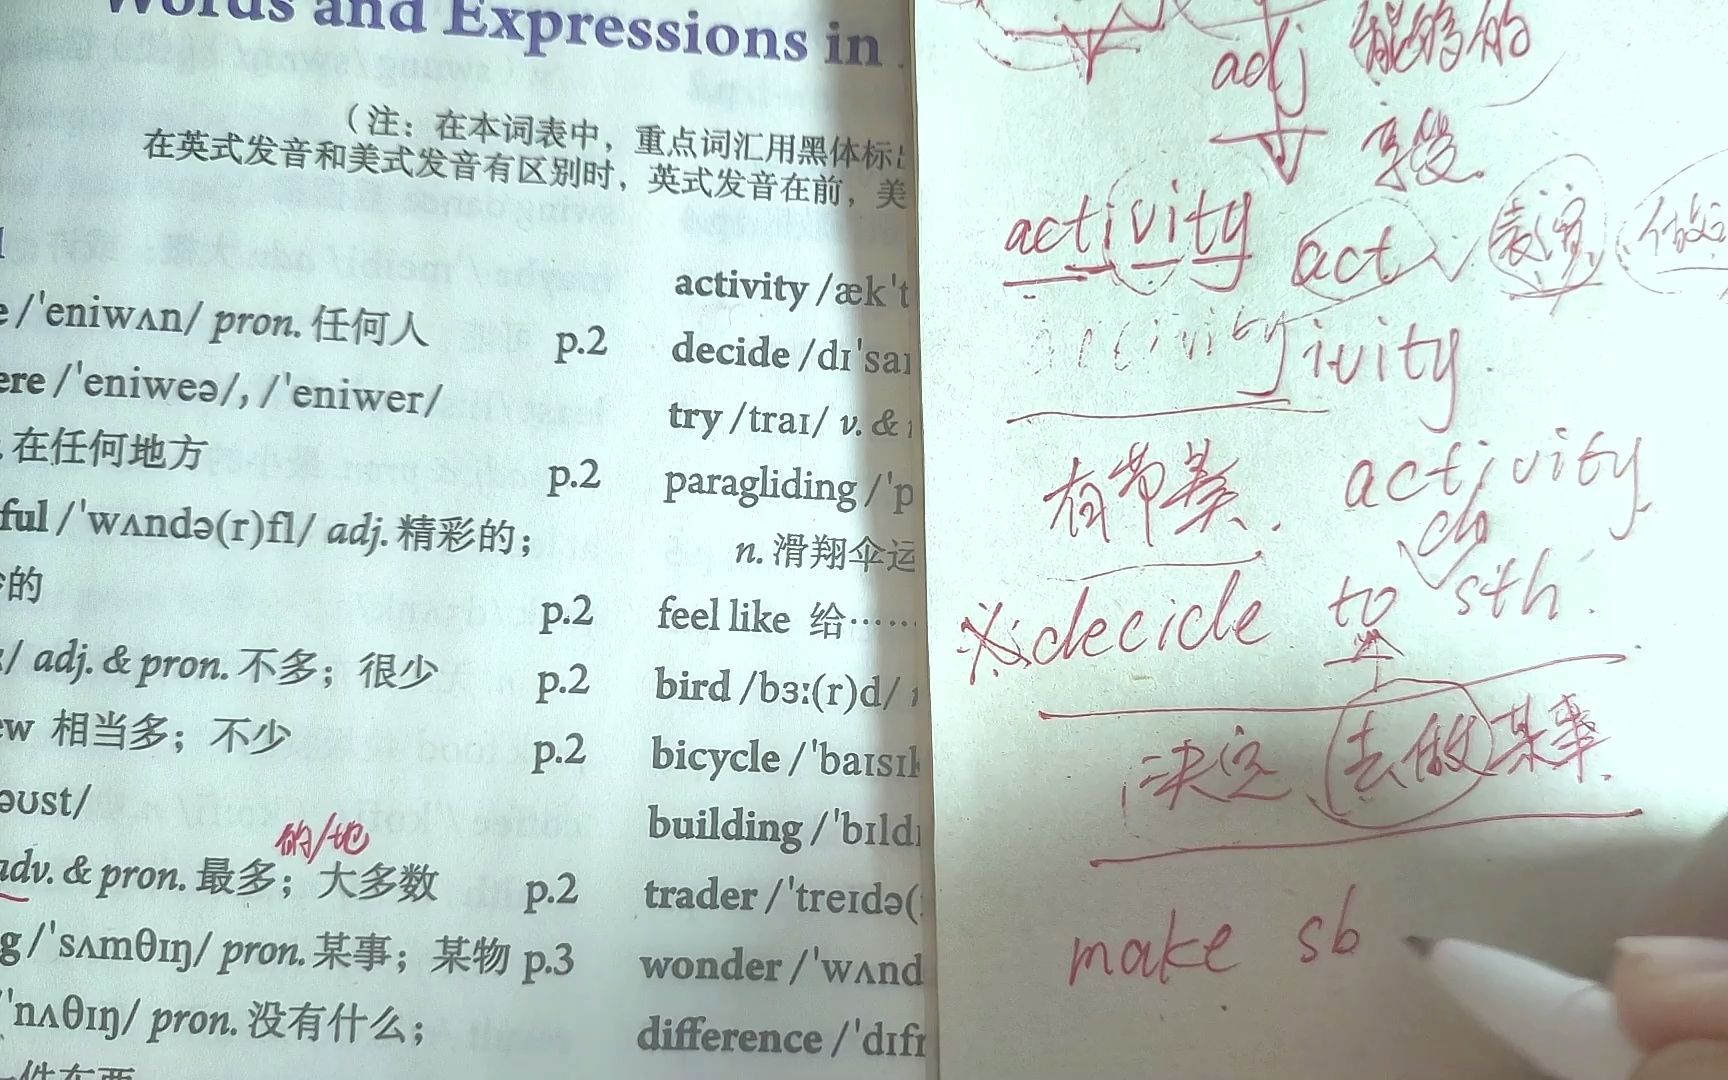 Words and Expressions in
（注：在本词表中，重点词汇用黑体标
在英式发音和美式发音有区别时，英式发音在前，美
e /ˈeniwʌn/ pron. 任何人 p.2
ere /ˈeniweə/, /ˈeniwer/
在任何地方 p.2
ful /ˈwʌndə(r)fl/ adj. 精彩的；
的 p.2
/ adj. & pron. 不多；很少 p.2
ew 相当多；不少 p.2
əʊst/
的/地
adv. & pron. 最多；大多数 p.2
g /ˈsʌmθɪŋ/ pron. 某事；某物 p.3
ˈnʌθɪŋ/ pron. 没有什么；
一件东西
activity /ækˈt
decide /dɪˈsaɪ
try /traɪ/ v. &
paragliding /ˈp
n. 滑翔伞运
feel like 给……
bird /bɜː(r)d/
bicycle /ˈbaɪsɪk
building /ˈbɪldɪ
trader /ˈtreɪdə(
wonder /ˈwʌnd
difference /ˈdɪfr
adj 能够的
享受
activity act 表演 做
activity ivity
有节奏. activity
do
※decide to sth.
决定 去做某事.
make sb